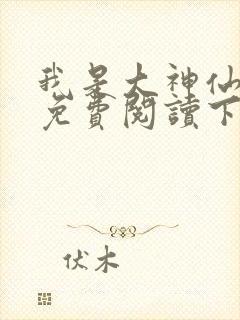 我是大神仙
免費閱讀下
伏木